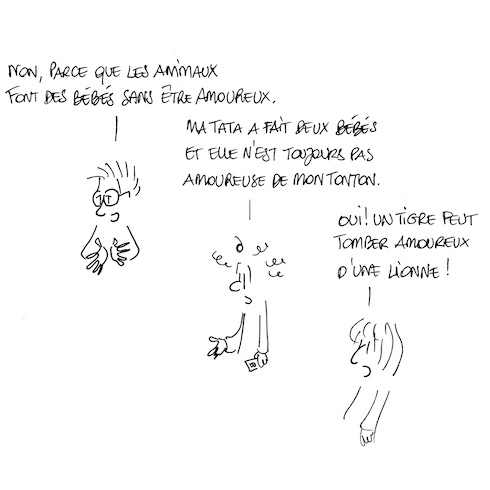 NON, PARCE QUE LES ANIMAUX
FONT DES BÉBÉS SANS ÊTRE AMOUREUX.
MA TATA A FAIT DEUX BÉBÉS
ET ELLE N'EST TOUJOURS PAS
AMOUREUSE DE MON TONTON.
OUI! UN TIGRE PEUT
TOMBER AMOUREUX
D'UNE LIONNE!